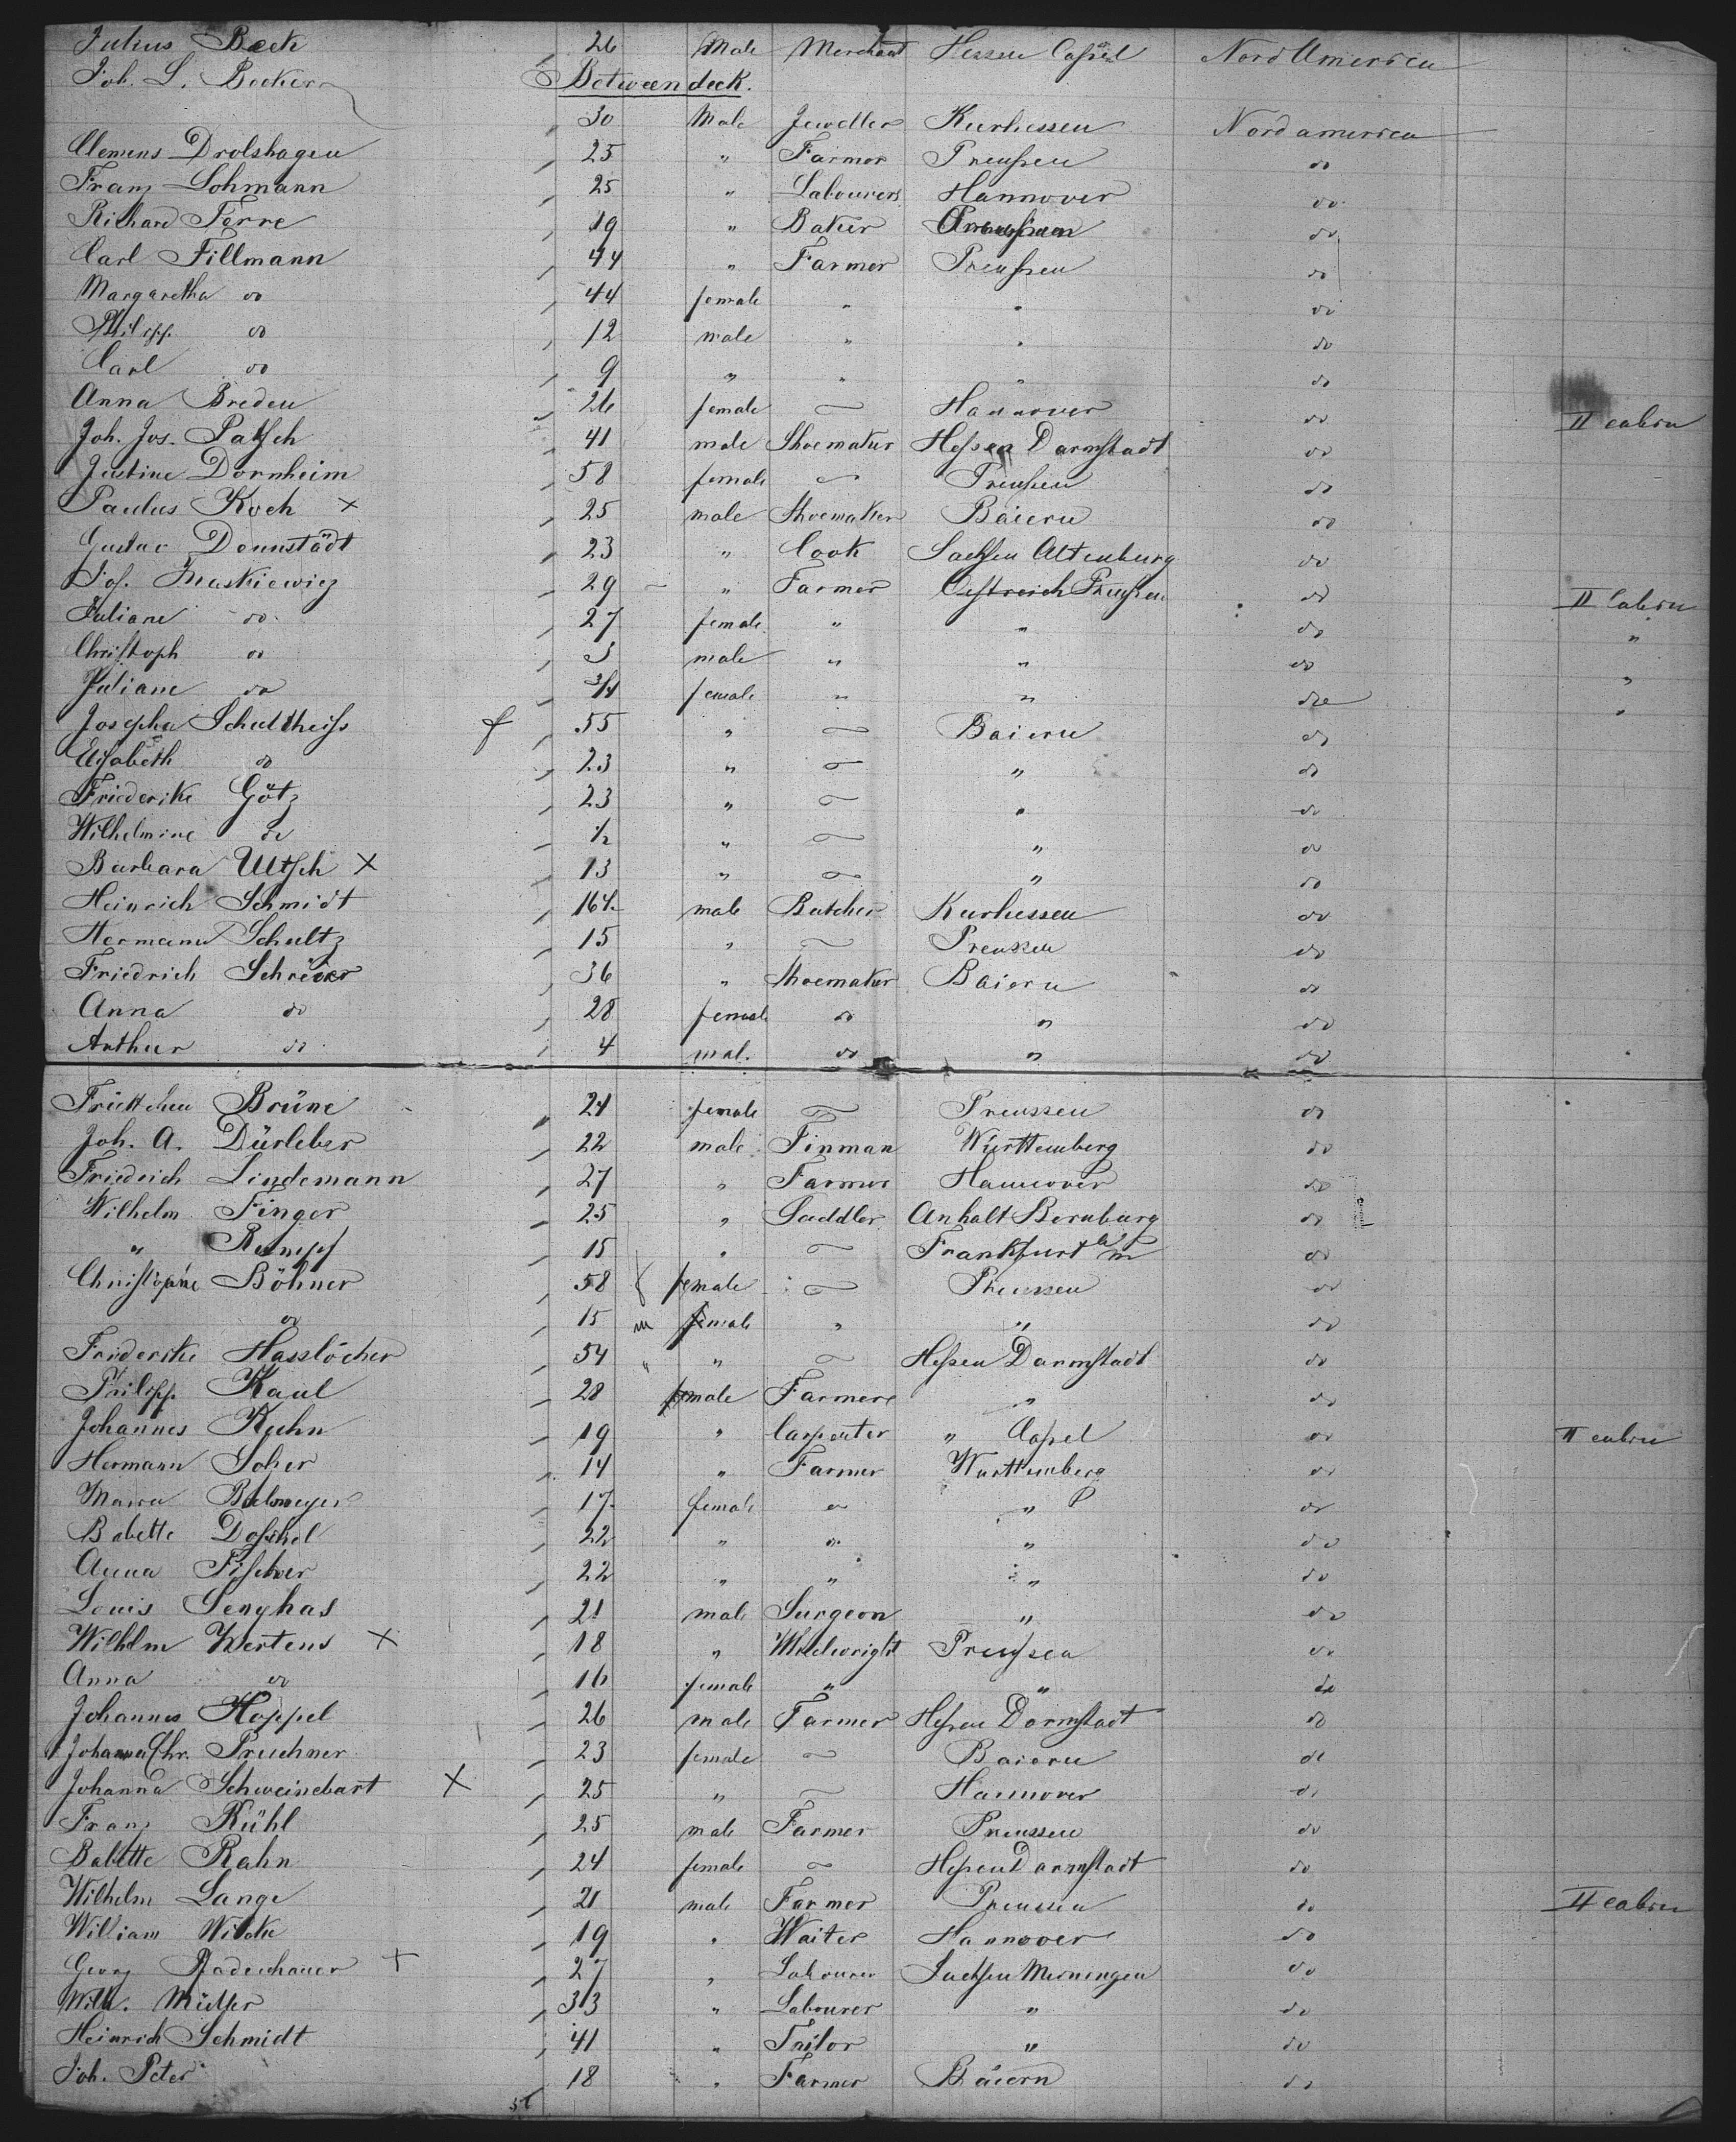 Julius Beck 26 Male Merchant Hessen Cassel Nord America
Joh. L. Becker Between deck.
30 Male Jeweller Kurhessen Nord america
Clemens Drolshagen 25 " Farmer Preußen do
Franz Lohmann 25 " Labourers Hannover do
Richard Ferre 19 " Baker do
Carl Fillmann 44 " Farmer Preußen do
Margaretha do 44 female " " do
Philipp do 12 male " " do
Carl do 9 " " " do
Anna Breden 26 female — Hannover do II cabin
Joh. Jos. Patsch 41 male Shoemaker Hessen Darmstadt do
Justine Dornheim 58 female — Preußen do
Paulus Koch × 25 male Shoemaker Baiern do
Gustav Dennstädt 23 " Cook Sachsen Altenburg do
Jos. 29 " Farmer Oestreich Preußen do II Cabin
Juliane do 27 female " " do "
Christoph do 3 male " " do "
Juliane do 3/4 female " " do "
Josepha Schultheiss f 55 " — Baiern do
Elisabeth do 23 " — " do
Friederike Götz 23 " — " do
Wilhelmine do 1/2 " — " do
Barbara Ultsch × 13 " — " do
Heinrich Schmidt 16 male Butcher Kurhessen do
Hermann Schultz 15 " — Preussen do
Friedrich Schreiber 36 " Shoemaker Baiern do
Anna do 28 female do " do
Arthur do 4 mal. do " do
Friettchen Brüne 24 female — Preussen do
Joh. A. Dürleber 22 male Tinman Württemberg do
Friedrich Lindemann 27 " Farmer Hannover do
Wilhelm Finger 25 " Saddler Anhalt Bernburg do
" Rumpf 15 " — Frankfurt a/m do
Christophine Böhner 58 f female — Preussen do
do 15 m female " " do
Friderike Hasslöcher 54 " " — Hessen Darmstadt do
Philipp Kaul 28 female Farmer " do
Johannes Kuhn 19 " Carpenter " Cassel do II cabin
Hermann Soher 14 " Farmer Württemberg do
Maria 17 female do " do
Babette Doschel 22 " do " do
Anna Fischer 22 " " " do
Louis Senghas 21 male Surgeon " do
Wilhelm Mertens × 18 " Wheelwright Preußen do
Anna do 16 female " " do
Johannes Hoppel 26 male Farmer Hessen Darmstadt do
Johanna Chr. Pruchner 23 female — Baiern do
Johanna Schweinebart × 25 " — Hannover do
Franz Kühl 25 male Farmer Preussen do
Babette Rahn 24 female — Hessen Darmstadt do
Wilhelm Lange 21 male Farmer Preussen do II cabin
William Witte 19 " Waiter Hannover do
Georg × 27 " Labourer Sachsen Meiningen do
Wilh. Müller 33 " Labourer " do
Heinrich Schmidt 41 " Tailor " do
Joh. Peter 18 " Farmer Baiern do